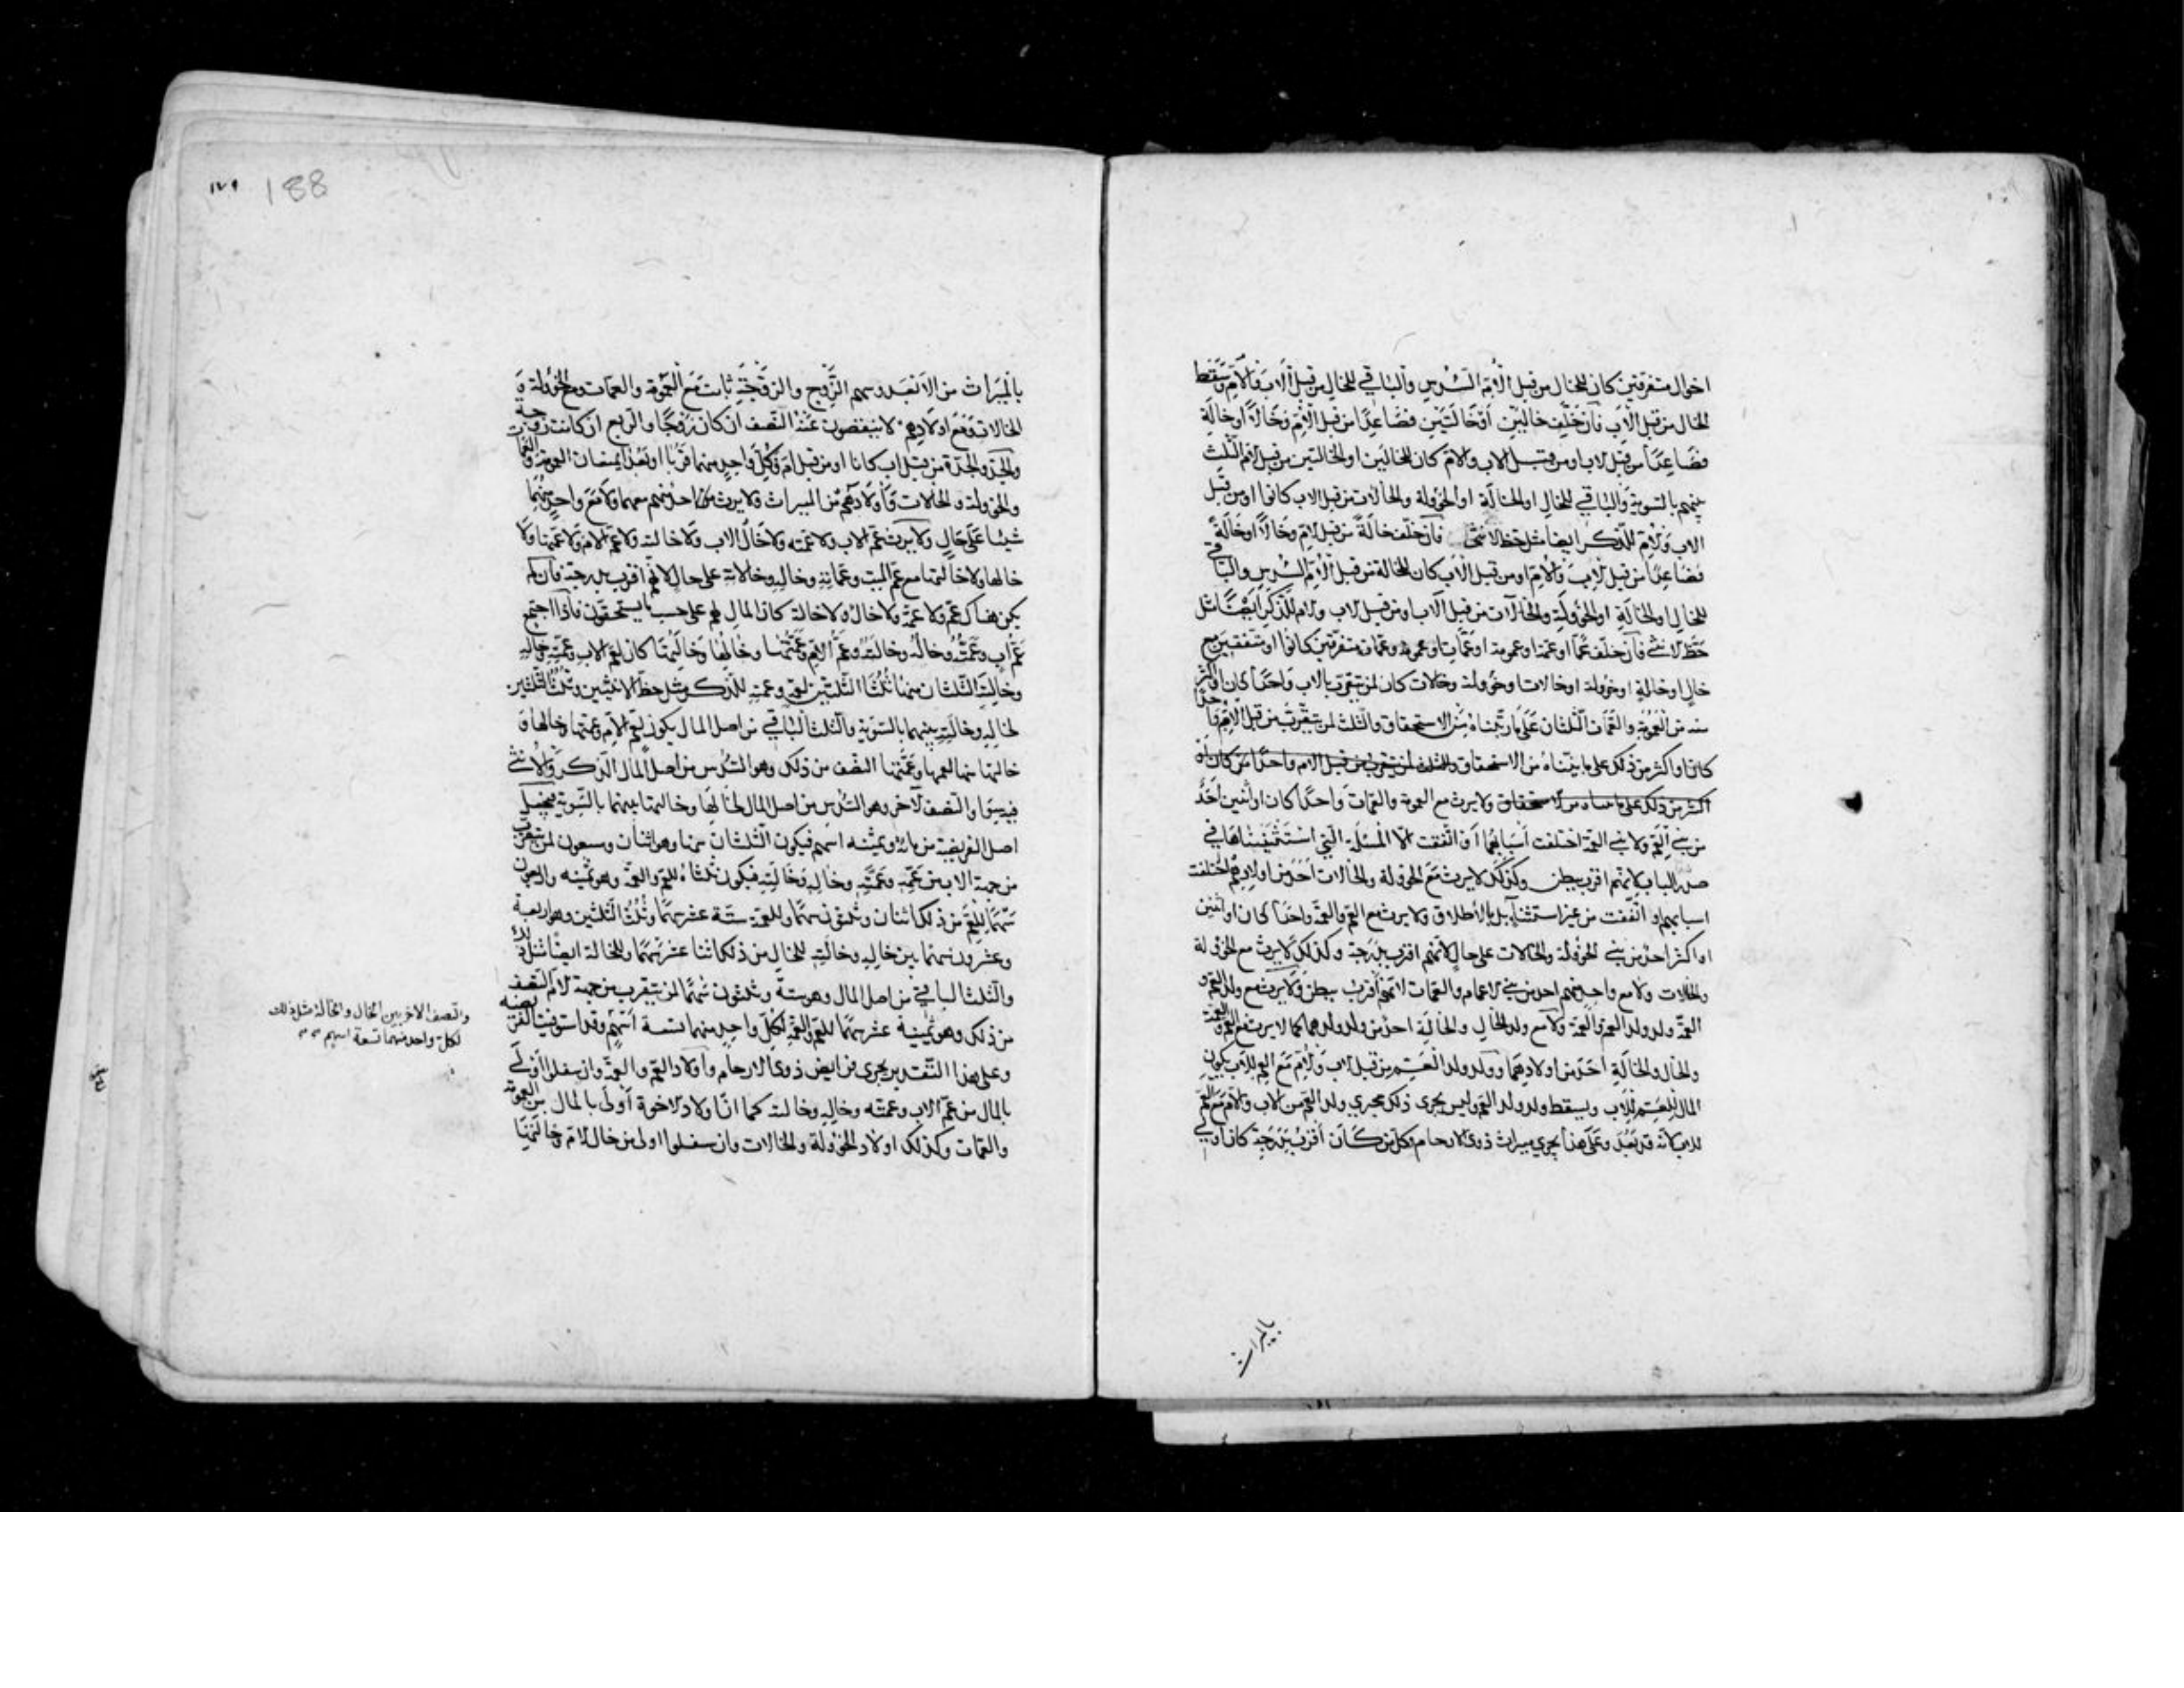 اخوال متفرقين كان للخال من قبل الأم السدس والباقي للخال من قبل الاب والام وسقط
الخال من قبل الاب فان خلف خالين أو خالتين فصاعدًا من قبل الأم وخالا أو خالة
فصاعدًا من قبل الاب او من قبل الاب والام كان للخالين او الخالتين من قبل الام الثلث
بينهم بالسوية والباقي للخال او الخالة او الخؤولة والخالات من قبل الاب كانوا او من قبل
الاب والام للذكر ايضا مثل حظ الانثى فان خلف خالة من قبل الام وخالا او خالة
فصاعدًا من قبل الاب والام او من قبل الاب كان للخالة من قبل الأم السدس والباقي
للخال او الخالة او الخؤولة والخالات من قبل الاب او من قبل الاب والام للذكر ايضًا مثل
حظ الانثى فان خلف عمًا او عمة او عمومة او عمات او عمومة وعمات متفرقين كانوا او متفقين مع
خال او خالة او خؤولة او خالات او خؤولة وخالات كان لمن يتقرب بالاب واحدًا كان او اكثر
منه من العمومة والعمات الثلثان على ما رتبناه من الاستحقاق والثلث لمن يتقرب من قبل الام واحدًا
كان او اكثر من ذلك على ما بيناه من الاستحقاق والثلث لمن يتقرب من قبل الام واحدًا من كان او
اكثر من ذلك على ما بيناه من الاستحقاق ولا يرث مع العمومة والعمات واحدًا كان او اثنين احد
من بني العم ولا بني العمة اختلفت أسبابهما أو اتفقت الا المسئلة التي استثنيناها في
صدر الباب لانهم اقرب ببطن وكذلك لا يرث مع الخؤولة والخالات احد من اولادهم اختلفت
اسبابهم او اتفقت من غير استثناء بل بالاطلاق ولا يرث مع العم والعمة واحدا كان او اثنين
او اكثر احد من بني الخؤولة والخالات على حال لانهم اقرب بدرجة وكذلك لا يرث مع الخؤولة
والخالات ولا مع واحد منهم احد من بني الاعمام والعمات لانهم اقرب ببطن ولا يرث مع ولد العم و
العمة ولد ولد العم والعمة ولا مع ولد الخال والخالة احد من ولد ولدهما كما لا يرث مع العم والعمة
والخال والخالة احد من اولادهما وولد ولد العم من قبل الاب والام مع العم للاب يكون
المال للعم للاب ويسقط ولد ولد العم وليس يجرى ذلك مجرى ولد العم من الاب والام مع العم
للاب لانه قد بعد وعلى هذا يجرى ميراث ذوى الارحام وكل من كان أقرب بدرجة كان اولى
بالميراث
١٧٩ 188
بالميراث من الابعد وسهم الزوج والزوجة ثابت مع العمومة والعمات ومع الخؤولة و
الخالات ومع اولادهم لا ينقصون عن النصف ان كان زوجًا والربع ان كانت زوجة
والجد والجدة من قبل اب كانا او من قبل ام وكل واحد منهما قربا او بعدا يمنعان العمومة والعمات
والخؤولة والخالات واولادهم من الميراث ولا يرث احد منهم معهما ولا مع واحد منهما
شيئا على حال ولا يرث عم الاب ولا عمته ولا خال الاب ولا خالته ولا عم الام ولا عمتها ولا
خالها ولا خالتها مع عم الميت وعماته وخاله وخالاته على حال لانهم اقرب بدرجة فان لم
يكن هناك عم ولا عمة ولا خال ولا خالة كان المال لهم على حسب ما يستحقون فاذا اجتمع
عم أب وعمته وخاله وخالته وعم الام وعمتها وخالها وخالتها كان لعم الاب وعمته وخاله
وخالته الثلثان منها ثلثا الثلثين لعمه وعمته للذكر مثل حظ الانثيين وثلث الثلثين
لخاله وخالته بينهما بالسوية والثلث الباقي من اصل المال يكون لعم الام وعمتها وخالها و
خالتها منها لعمها وعمتها النصف من ذلك وهو السدس من اصل المال الذكر والانثى
فيه سوا والنصف الآخر وهو السدس من اصل المال لخالها وخالتها بينهما بالسوية يحصل
اصل الفريضة من مائة وثمنية اسهم فيكون الثلثان منها وهو اثنان وسبعون لمن يتقرب
من جهة الاب من عمه وعمته وخاله وخالته فيكون ثلثاه للعم والعمة وهو ثمنية واربعون
سهمًا للعم من ذلك اثنان وثلثون سهمًا وللعمة ستة عشر سهمًا وثلث الثلثين وهو اربعة
وعشرون سهمًا بين خاله وخالته للخال من ذلك اثنا عشر سهمًا وللخالة ايضًا مثل ذلك
والثلث الباقي من اصل المال وهو ستة وثلثون سهمًا لمن يتقرب من جهة الام النصف
من ذلك وهو ثمنية عشر سهمًا للعم والعمة لكل واحد منهما تسعة أسهم وقد استوفيت الفريضة
وعلى هذا التقدير يجرى فرايض ذوى الارحام وأولاد العم والعمة وان سفلوا أولى
بالمال من عم الاب وعمته وخاله وخالته كما ان اولاد الاخوة أولى بالمال من العمومة
والعمات وكذلك اولاد الخؤولة والخالات وان سفلوا اولى من خال الام وخالتها
والنصف الاخر بين الخال والخالة مثل ذلك
لكل واحد منهما تسعة اسهم